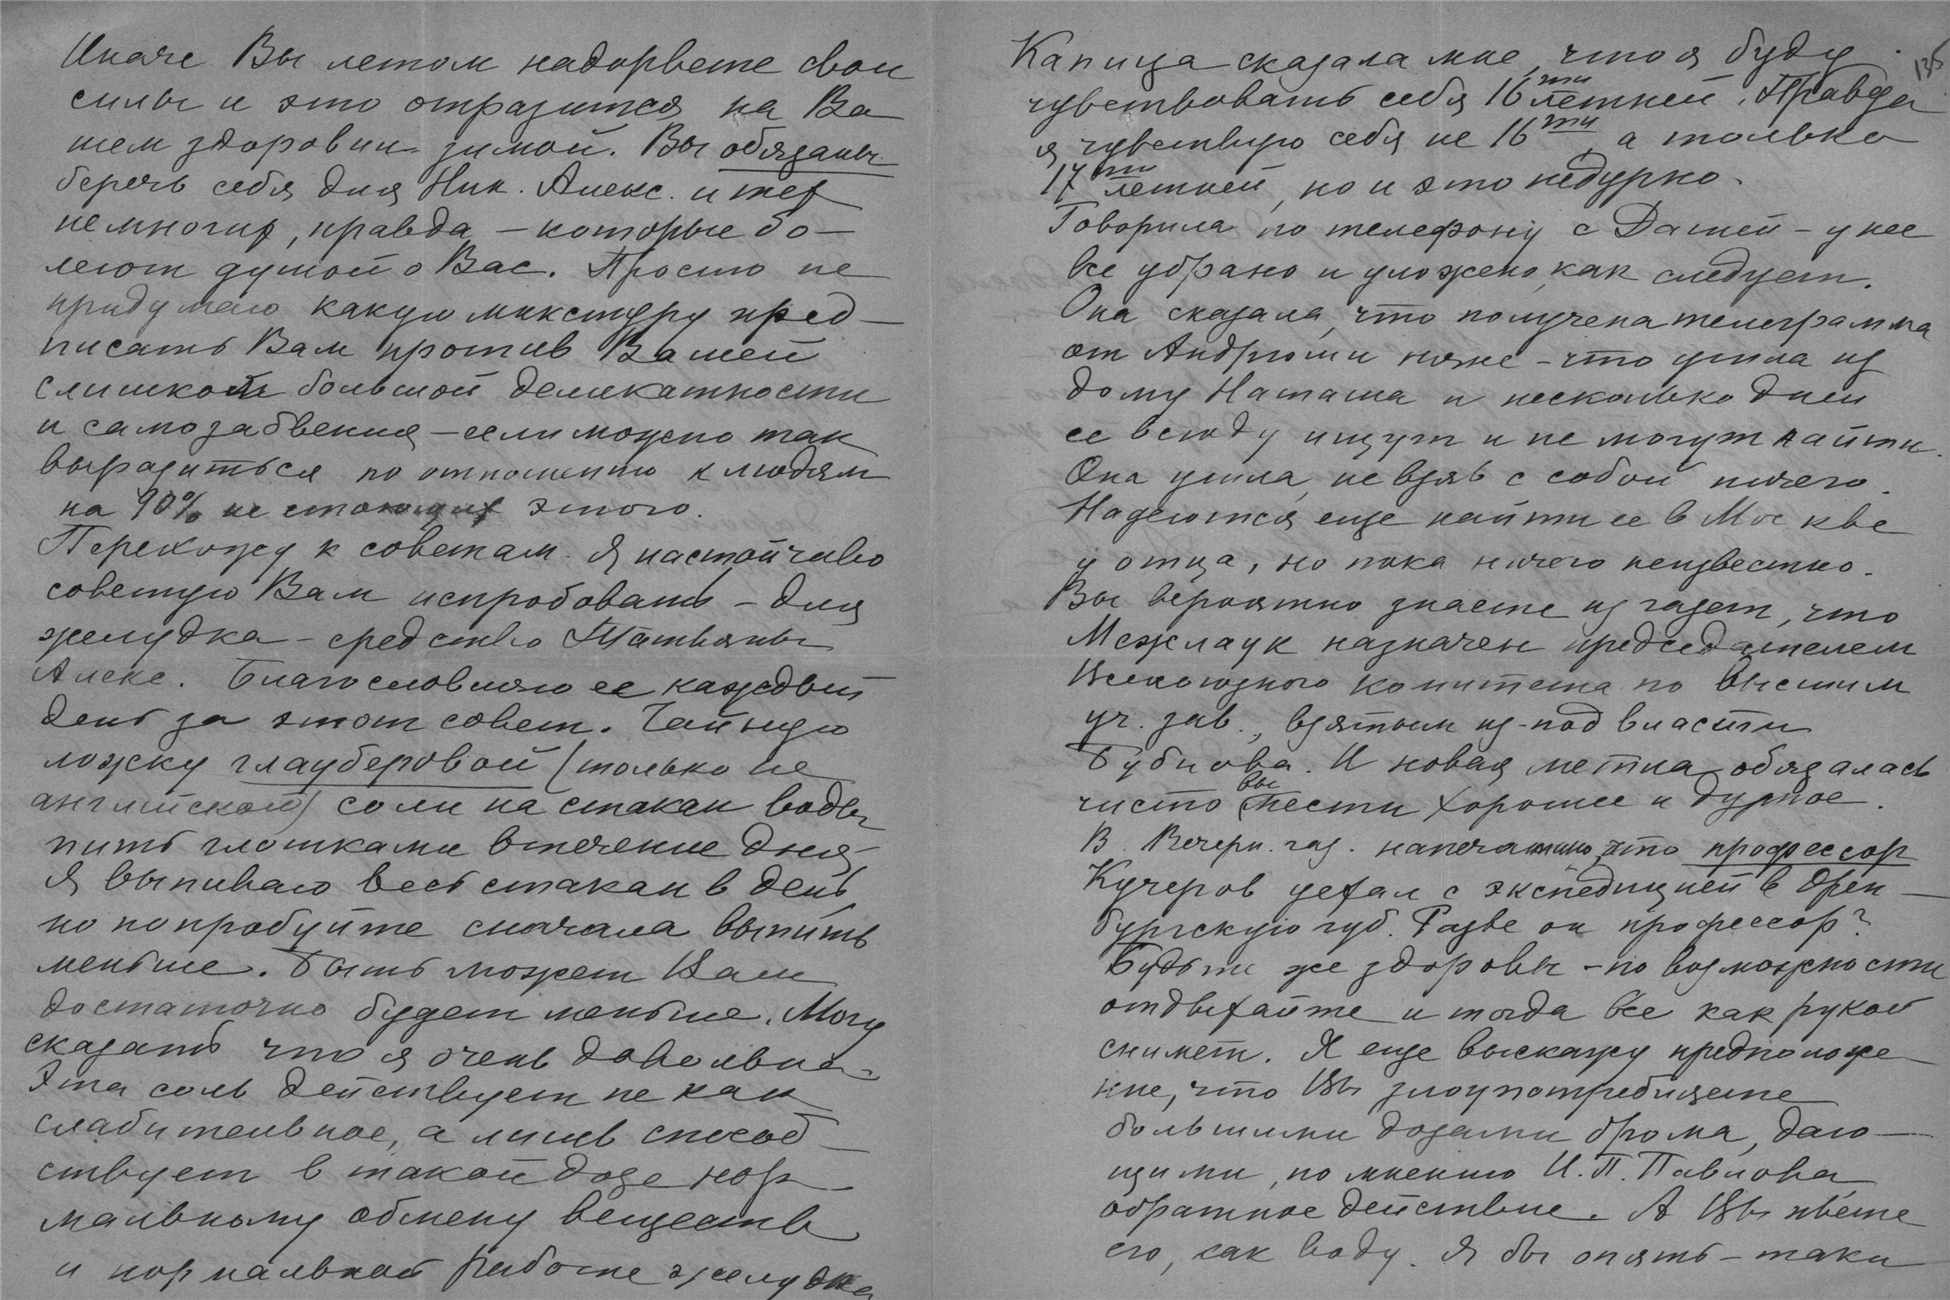 Иначе Вы летом надорвете свои
силы и это отразится на Ва
шем здоровии зимой. Вы обязаны
беречь себя для Ник. Алекс. и тех
немногих, правда, – которые бо–
леют душой о Вас. Просто не
придумаю какую микстуру пред–
писать Вам против Вашей
слишком большой деликатности
и самозабвения – если можно так
выразиться по отношению к людям
на 90% не стоющих этого.
Перехожу к советам. Я настойчиво
советую Вам испробовать – для
желудка – средство Татьяны
Алекс. Благословляю ее каждый
день за этот совет. Чайную
ложку глауберовой (только не
английской) соли на стакан воды
пить глотками втечение дня,
Я выпиваю весь стакан в день,
но попробуйте сначала выпить
меньше. Быть может Вам
достаточно будет меньше. Могу
сказать что я очень довольна.
Эта соль действует не как
слабительное, а лишь способ–
ствует в такой дозе нор–
мальному обмену веществ
и нормальной работе желудка
135
Капица сказала мне, что я буду
чувствовать себя 16ти летней. Правда
я чувствую себя не 16ти, а только
17ти летней, но и это недурно.
Говорила по телефону с Дашей – у нее
все убрано и уложено, как следует.
Она сказала, что получена телеграмма
от Андрюши няне – что ушла из
дому Наташа и несколько дней
ее всюду ищут и не могут найти.
Она ушла, не взяв с собой ничего.
Надеются еще найти ее в Москве
у отца, но пока ничего неизвестно.
Вы вероятно знаете из газет, что
Межлаук назначен председателем
Всесоюзного комитета по высшим
уч. зав., взятым из-под власти
Бубнова. И новая метла обязалась
чисто вымести хорошее и дурное.
В. Вечерн. газ. напечатано, что профессор
Кучеров уехал с экспедицией в Орен–
бургскую губ. Разве он профессор?
Будьте же здоровы – по возможности
отдыхайте и тогда все как рукой
снимет. Я еще выскажу предположе–
ние, что Вы злоупотребляете
большими дозами брома, даю–
щими, по мнению И. П. Павлова,
обратное действие. А Вы пьете
его, как воду. Я бы опять – таки